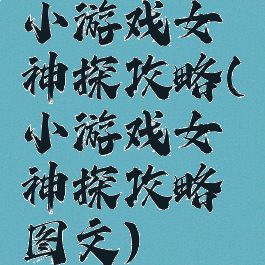 小游戏女
神探攻略(
小游戏女
神探攻略
图文)